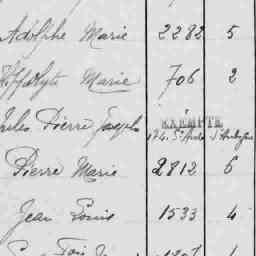 Adolphe Marie 2282 5
Hippolyte Marie 706 2
Jules Pierre Joseph EXEMPTÉ
Pierre Marie 2812 6
Jean Louis 1533 4